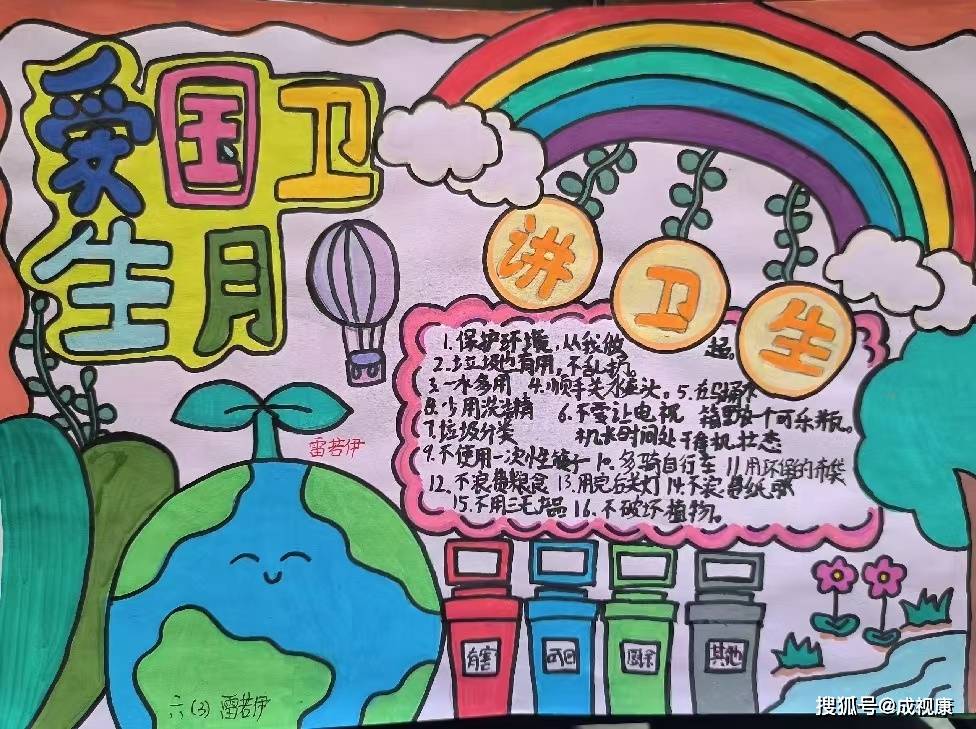 爱国卫
生月
讲卫生
1.保护环境,从我做起。
2.垃圾也有用,不乱扔。
3.一水多用 4.顺手关水龙头。5.在马桶水
8.少用洗洁精 6.不要让电视 箱里放一个可乐瓶。
7.垃圾分类 机长时间处于待机状态
9.不使用一次性筷子 10.多骑自行车 11.用环保的布袋
12.不浪费粮食 13.用完后关灯 14.不浪费纸张
15.不用三无产品 16.不破坏植物。
雷若伊
有害
可回
厨余
其他
六(3) 雷若伊
搜狐号@成视康